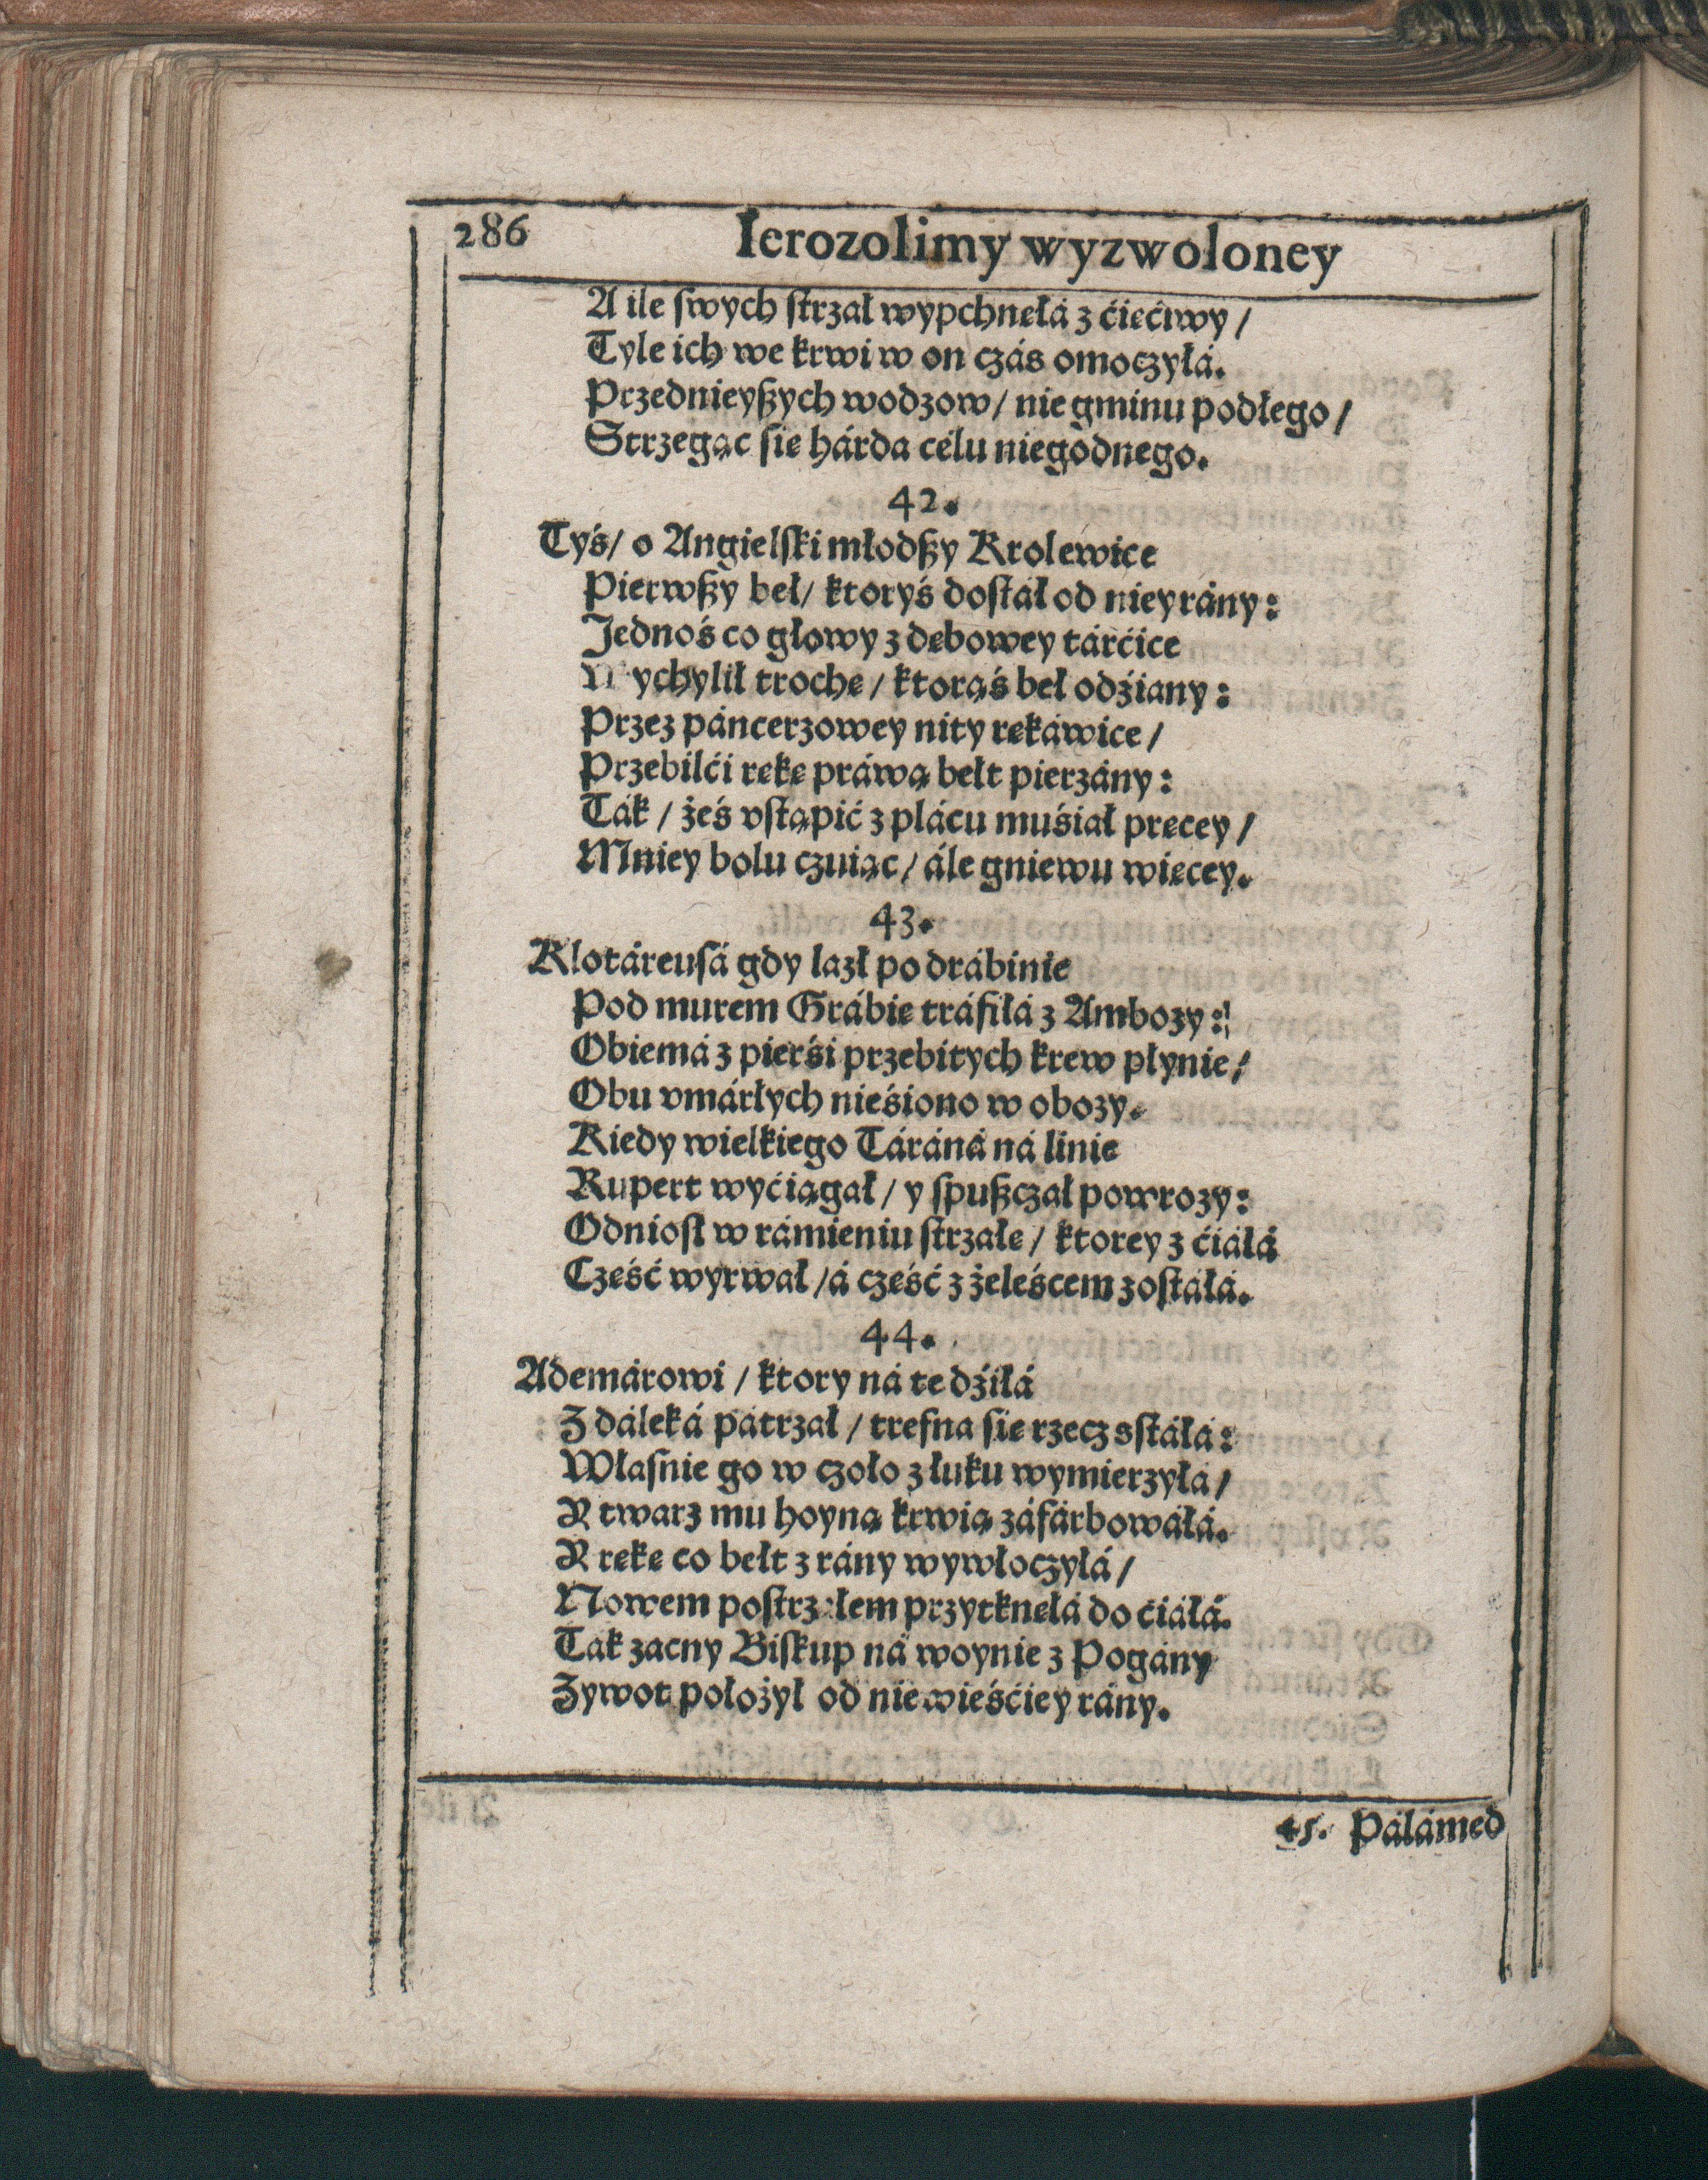 286 Ierozolimy wyzwoloney
A ile ſwych ſtrzał wypchnęłá z ćięćiwy /
Tyle ich we krwi w on czás omoczyłá.
Przednieyßych wodzow / nie gminu podłego /
Strzegąc ſię hárda celu niegodnego.
42.
Tyś / o Angielſki młodßy Krolewice
Pierwßy beł / ktoryś doſtał od niey rány:
Jednoś co głowy z dębowey tárćice
Wychylił trochę / ktorąś beł odźiany:
Przez páncerzowey nity rękáwice /
Przebilći rękę práwą bełt pierzány:
Ták / żeś vſtąpić z plácu muśiał pręcey /
Mniey bolu czuiąc / ále gniewu więcey.
43.
Klotáreuſá gdy lazł po drábinie
Pod murem Grábię tráfiłá z Ambozy:
Obiemá z pierśi przebitych krew płynie /
Obu vmárłych nieśiono w obozy.
Kiedy wielkiego Táráná ná linie
Rupert wyćiągał / y ſpußczał powrozy:
Odnioſł w rámieniu ſtrzałę / ktorey z ćiáłá
Część wyrwał / á część z żeleścem zoſtáłá.
44.
Ademárowi / ktory ná te dźiłá
Z dáleká pátrzał / trefna ſię rzecz sſtáłá:
Właſnie go w czoło z łuku wymierzyłá /
Y twarz mu hoyną krwią záfárbowáłá.
Y rękę co bełt z rány wywłoczyłá /
Nowem poſtrzałem przytknęłá do ćiáłá.
Ták zacny Biſkup ná woynie z Pogány
Zywot położył od niewieśćiey rány.
45. Pálámed